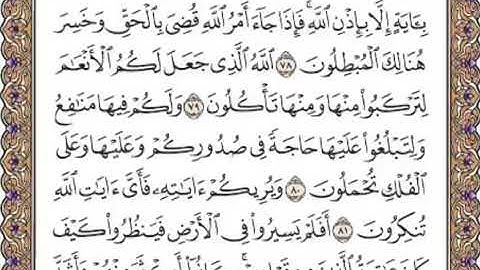 بِـَٔايَةٍ إِلَّا بِإِذۡنِ ٱللَّهِۚ فَإِذَا جَآءَ أَمۡرُ ٱللَّهِ قُضِيَ بِٱلۡحَقِّ وَخَسِرَ
هُنَالِكَ ٱلۡمُبۡطِلُونَ ٧٨ ٱللَّهُ ٱلَّذِي جَعَلَ لَكُمُ ٱلۡأَنۡعَٰمَ
لِتَرۡكَبُواْ مِنۡهَا وَمِنۡهَا تَأۡكُلُونَ ٧٩ وَلَكُمۡ فِيهَا مَنَٰفِعُ
وَلِتَبۡلُغُواْ عَلَيۡهَا حَاجَةٗ فِي صُدُورِكُمۡ وَعَلَيۡهَا وَعَلَى
ٱلۡفُلۡكِ تُحۡمَلُونَ ٨٠ وَيُرِيكُمۡ ءَايَٰتِهِۦ فَأَيَّ ءَايَٰتِ ٱللَّهِ
تُنكِرُونَ ٨١ أَفَلَمۡ يَسِيرُواْ فِي ٱلۡأَرۡضِ فَيَنظُرُواْ كَيۡفَ